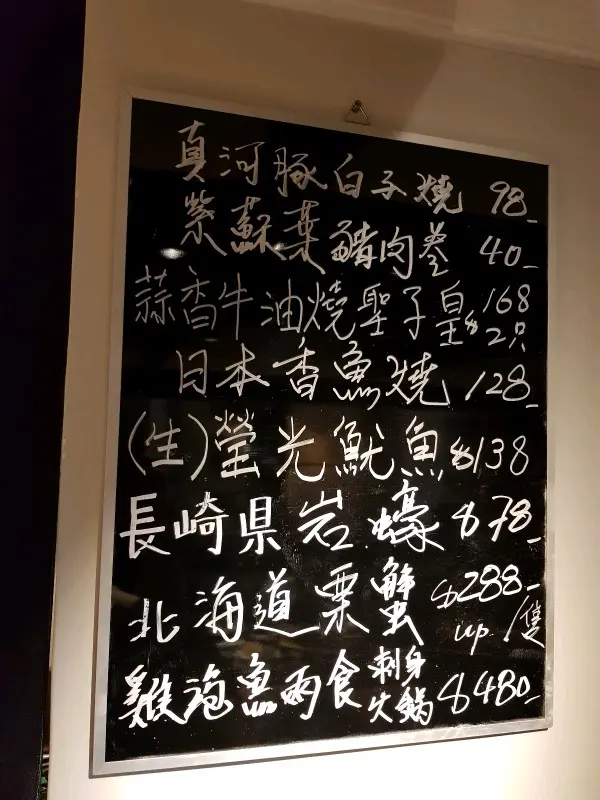 真河豚白子燒 98-
紫蘇葉豬肉卷 40-
蒜香牛油燒聖子皇 $168
2只
日本香魚燒 128-
(生)螢光魷魚 $138
長崎県岩蠔 $78-
北海道栗蟹 $288-
up/隻
雞泡魚兩食 刺身 $480-
火鍋